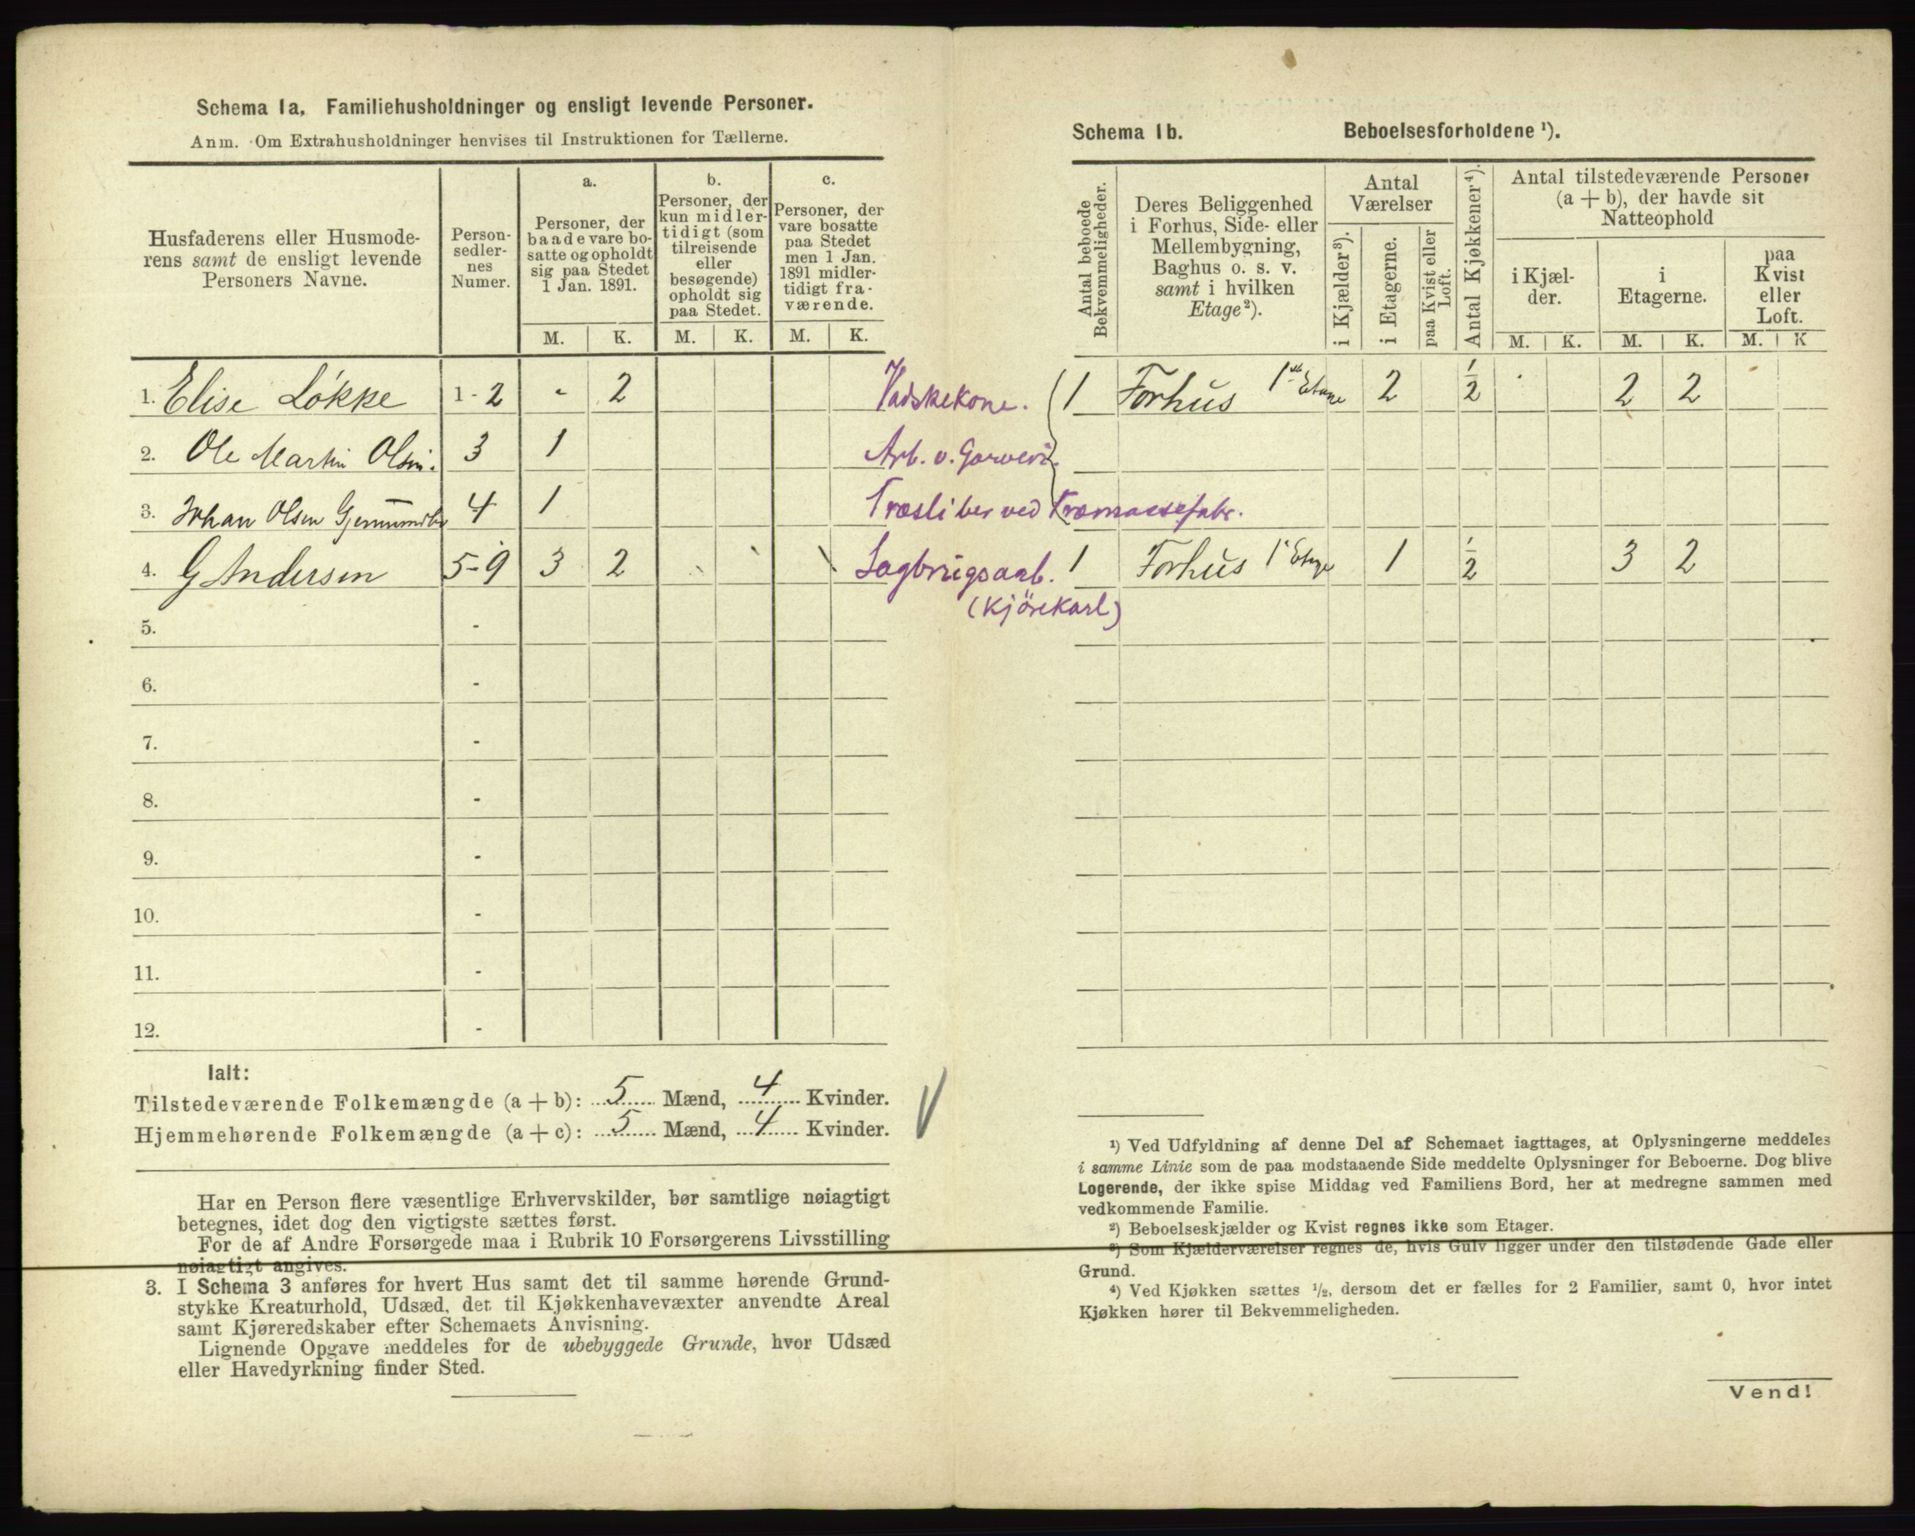 Schema 1a. Familiehusholdninger og ensligt levende Personer.
Anm. Om Extrahusholdninger henvises til Instruktionen for Tællerne.
Husfaderens eller Husmode-
rens samt de ensligt levende
Personers Navne.
Person-
sedler-
nes
Numer.
a.
Personer, der
baade vare bo-
satte og opholdt
sig paa Stedet
1 Jan. 1891.
b.
Personer, der
kun midler-
tidigt (som
tilreisende
eller
besøgende)
opholdt sig
paa Stedet.
c.
Personer, der
vare bosatte
paa Stedet
men 1 Jan.
1891 midler-
tidigt fra-
værende.
M. K. M. K. M. K.
1. Elise Løkke 1-2 - 2 Vadskekone.
2. Ole Martin Olsen. 3 1 Arb. v. Garveri.
3. Johan Olsen 4 1 Træsliber ved Træmassefabr.
4. G Andersen 5-9 3 2 Sagbrugsarb.
(Kjörekarl)
5. -
6. -
7. -
8. -
9. -
10. -
11. -
12. -
Ialt:
Tilstedeværende Folkemængde (a + b): 5 Mænd, 4 Kvinder.
Hjemmehørende Folkemængde (a + c): 5 Mænd, 4 Kvinder.
Har en Person flere væsentlige Erhvervskilder, bør samtlige nøiagtigt
betegnes, idet dog den vigtigste sættes først.
For de af Andre Forsørgede maa i Rubrik 10 Forsørgerens Livsstilling
nøiagtigt angives.
3. I Schema 3 anføres for hvert Hus samt det til samme hørende Grund-
stykke Kreaturhold, Udsæd, det til Kjøkkenhavevæxter anvendte Areal
samt Kjøreredskaber efter Schemaets Anvisning.
Lignende Opgave meddeles for de ubebyggede Grunde, hvor Udsæd
eller Havedyrkning finder Sted.
Schema 1b. Beboelsesforholdene ¹).
Antal beboede
Bekvemmeligheder.
Deres Beliggenhed
i Forhus, Side- eller
Mellembygning,
Baghus o. s. v.
samt i hvilken
Etage²).
Antal
Værelser
i Kjælder³).
i Etagerne.
paa Kvist eller
Loft.
Antal Kjøkkener⁴).
Antal tilstedeværende Personer
(a + b), der havde sit
Natteophold
i Kjæl-
der.
i
Etagerne.
paa
Kvist
eller
Loft.
M. K. M. K. M. K
1 Forhus 1ste Etage 2 1/2 2 2
1 Forhus 1 Etage 1 1/2 3 2
¹) Ved Udfyldning af denne Del af Schemaet iagttages, at Oplysningerne meddeles
i samme Linie som de paa modstaaende Side meddelte Oplysninger for Beboerne. Dog blive
Logerende, der ikke spise Middag ved Familiens Bord, her at medregne sammen med
vedkommende Familie.
²) Beboelseskjælder og Kvist regnes ikke som Etager.
³) Som Kjælderværelser regnes de, hvis Gulv ligger under den tilstødende Gade eller
Grund.
⁴) Ved Kjøkken sættes ½, dersom det er fælles for 2 Familier, samt 0, hvor intet
Kjøkken hører til Bekvemmeligheden.
Vend!